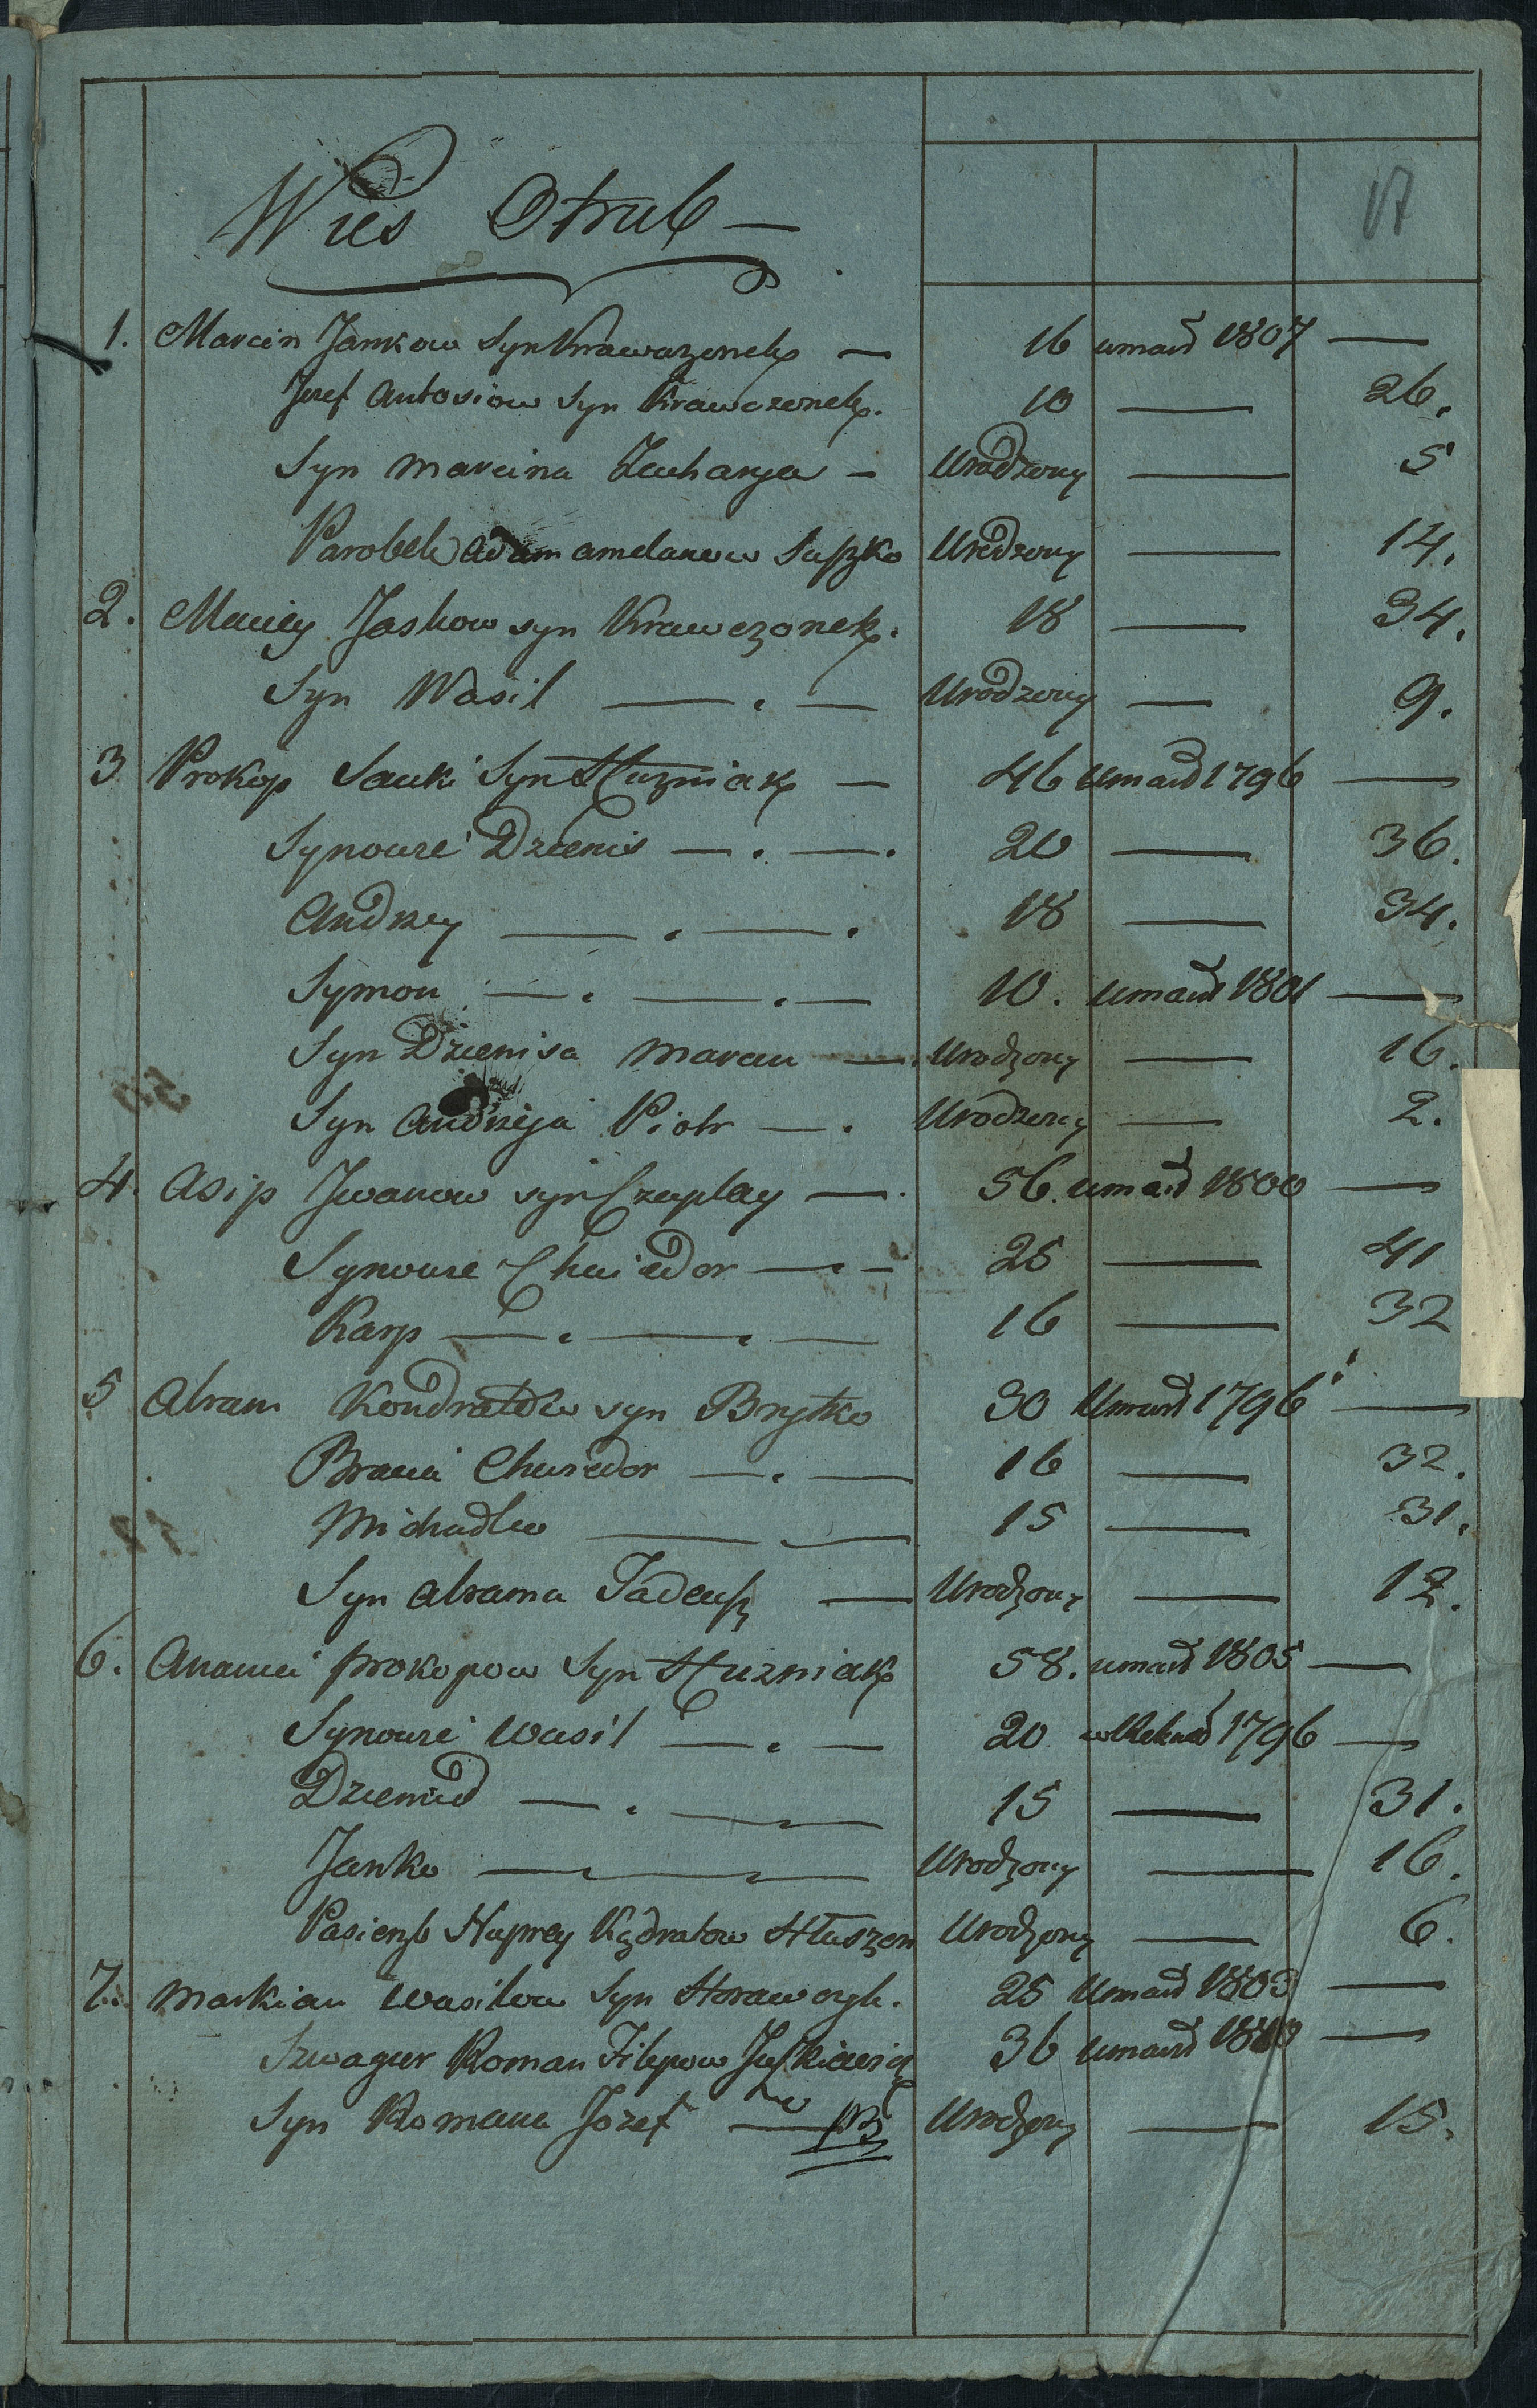 17
Wieś Otrub —
1. Marcin Jankow Syn Krawczonek — 16 umarł 1807 —
Jozef Antosiow Syn Krawczonek. 10 — 26.
Syn Marcina Zacharya — Urodzony — 5
Parobek Adam Suszko Urodzony — 14.
2. Maciey Jaskow syn Krawczonek. 18 — 34.
Syn Wasil — . — Urodzony — 9.
3 Prokop Sauki Syn Huzniak — 46 umarł 1796 —
Synowie Dzienis — . — . 20 — 36.
Andrzey — . — . 18 — 34.
Symon — . — . — 10. umarł 1801 —
Syn Dzienisa Marcin — . Urodzony — 16.
Syn Andrzeja Piotr — . Urodzony — 2.
4. Asip Jwanow syn Czaplay — . 56. umarł 1800 —
Synowie Chwiedor — . — 25 — 41
Karp — . — . — 16 — 32
5 Abram Kondratow syn Brytko 30 Umarł 1796 —
Bracia Chwiedor — . — 16 — 32.
Michadko — — 15 — 31.
Syn Abrama Tadeusz — Urodzony — 12.
6. Anani Prokopow Syn Huzniak 58. umarł 1805 —
Synowie Wasil — . — 20 w Rekrut 1796 —
Dziemid — . — 15 — 31.
Janko — Urodzony — 16.
Pasierzb Huprey Kądratow Urodzony — 6.
7. Markian Wasilow Syn 25 Umarł 1803 —
Szwagier Roman Filipow Juszkiewicz 36 umarł —
Syn Romana Jozef — Urodzony — 15.